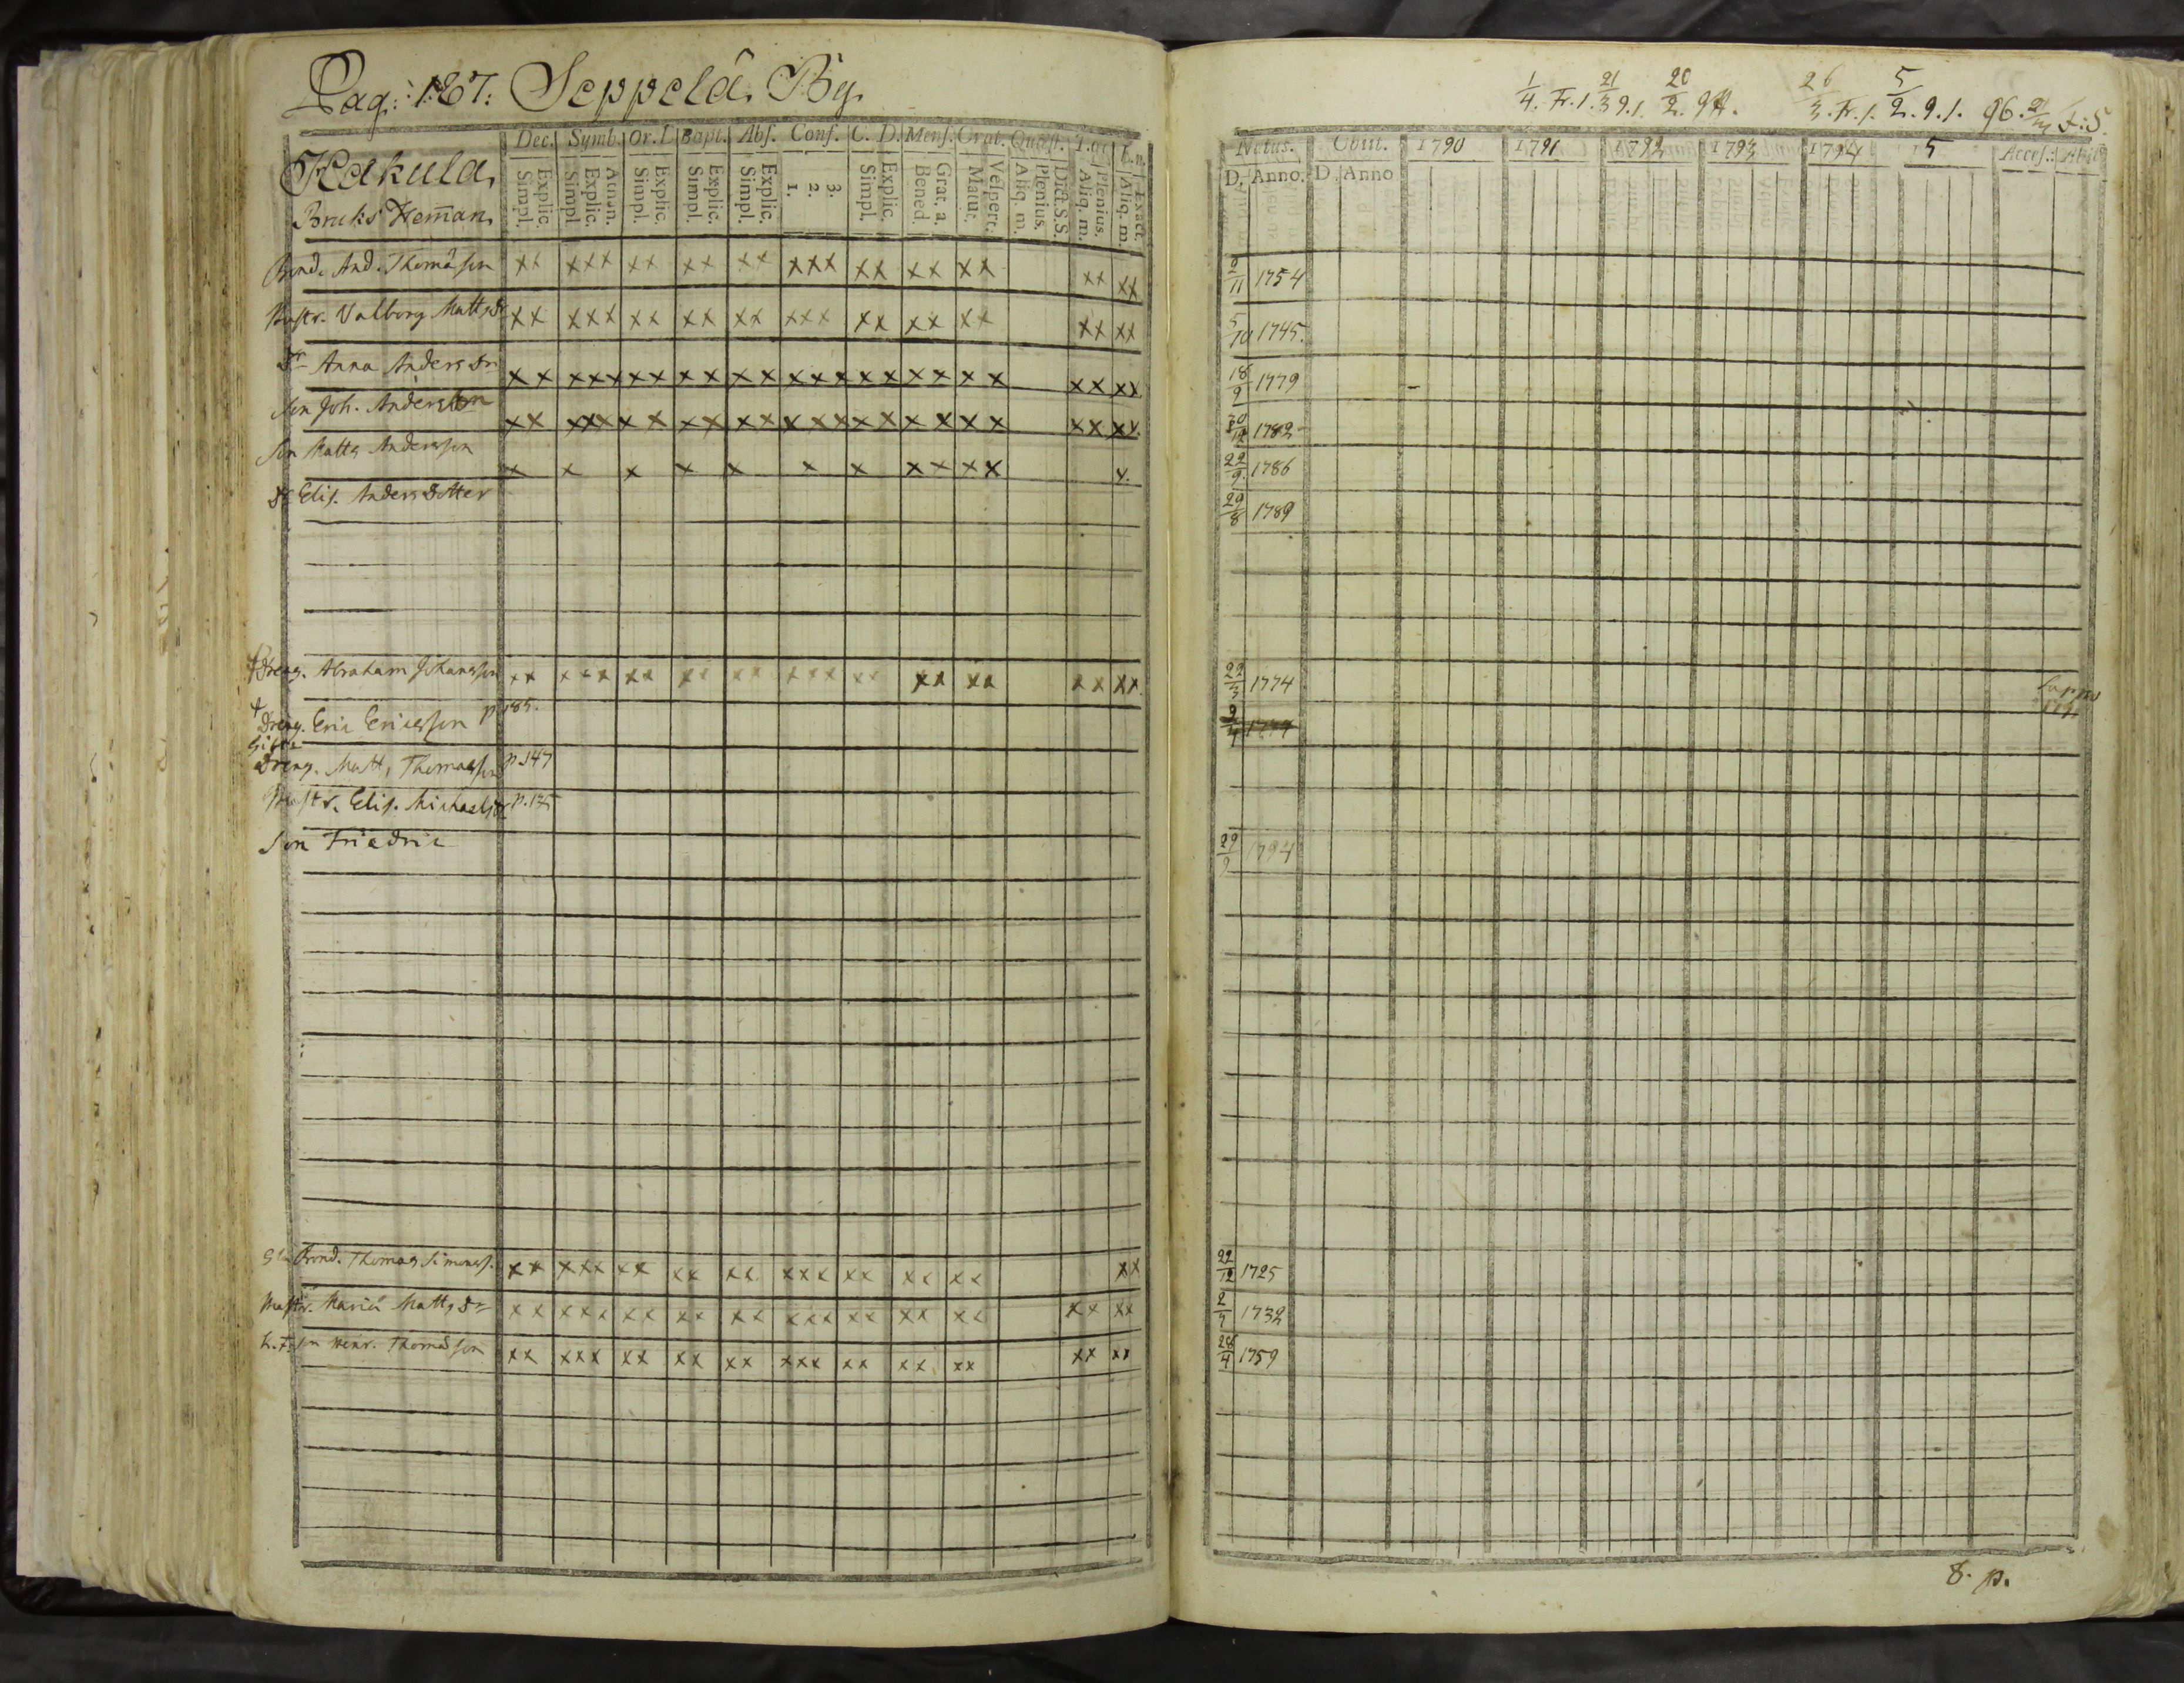 Pag: 187: Seppelä By
1/4. Fr. 1. 21/3 9.1. 20/2. 9 26/3. Fr. 1. 5/2. 9. 1. 96. 2/3 F:S.
Kakula,
Bruks Heman
Dec. Symb. Or. D Bapt. Abs. Conf. C. D. Mens. Grat. Quæst.
Explic. Simpl. Athan. Explic. Simpl Explic. Simpl. Explic. Simpl. Explic. Simpl. 3. 2. 1. Explic. Simpl. Grat. a. Bened. Vespert. Matut. Dict. S.S. Plenius. Aliq. m. Plenius. Aliq. m. Exact. Aliq. m.
Natus. Obiit. 1790 1791 1792 1793 1794 5 Access. Abiit
D. Anno. D. Anno
Bond. And. Thomasson xx xxx xx xx xx xxx xx xx xx xx xx 9/11 1754
Hustr. Valborg Matts Dr xx xxx xx xx xx xxx xx xx xx xx xx 5/10 1745.
Dr Anna Anders Dr xx xxx xx xx xx xxx xx xx xx xx xx 18/9 1779
Son Joh. Andersson xx xxx xx xx xx xxx xx xx xx xx xx 1782
Son Matts Andersson x x x x x x x xx xx x. 22/9 1786
Dr Elis. Anders Dotter 29/8 1789
Dreng. Abraham Johansson xx xxx xx xx xx xxx xx xx xx xx xx 22/3 1774
Dreng. Eric Ericsson p 185.
Dreng. Matt, Thomasson p. 147
Hustr. Elis. Michaels Dr p. 175
Son Friedric 29/9 1794
Bond. Thomas Simonss. xx xxx xx xx xx xxx xx xx xx xx 22/12 1725
Hustr. Maria Matts Dr xx xxx xx xx xx xxx xx xx xx xx xx 1732
Son Henr. Thomasson xx xxx xx xx xx xxx xx xx xx xx xx 28/4 1759
8. p.